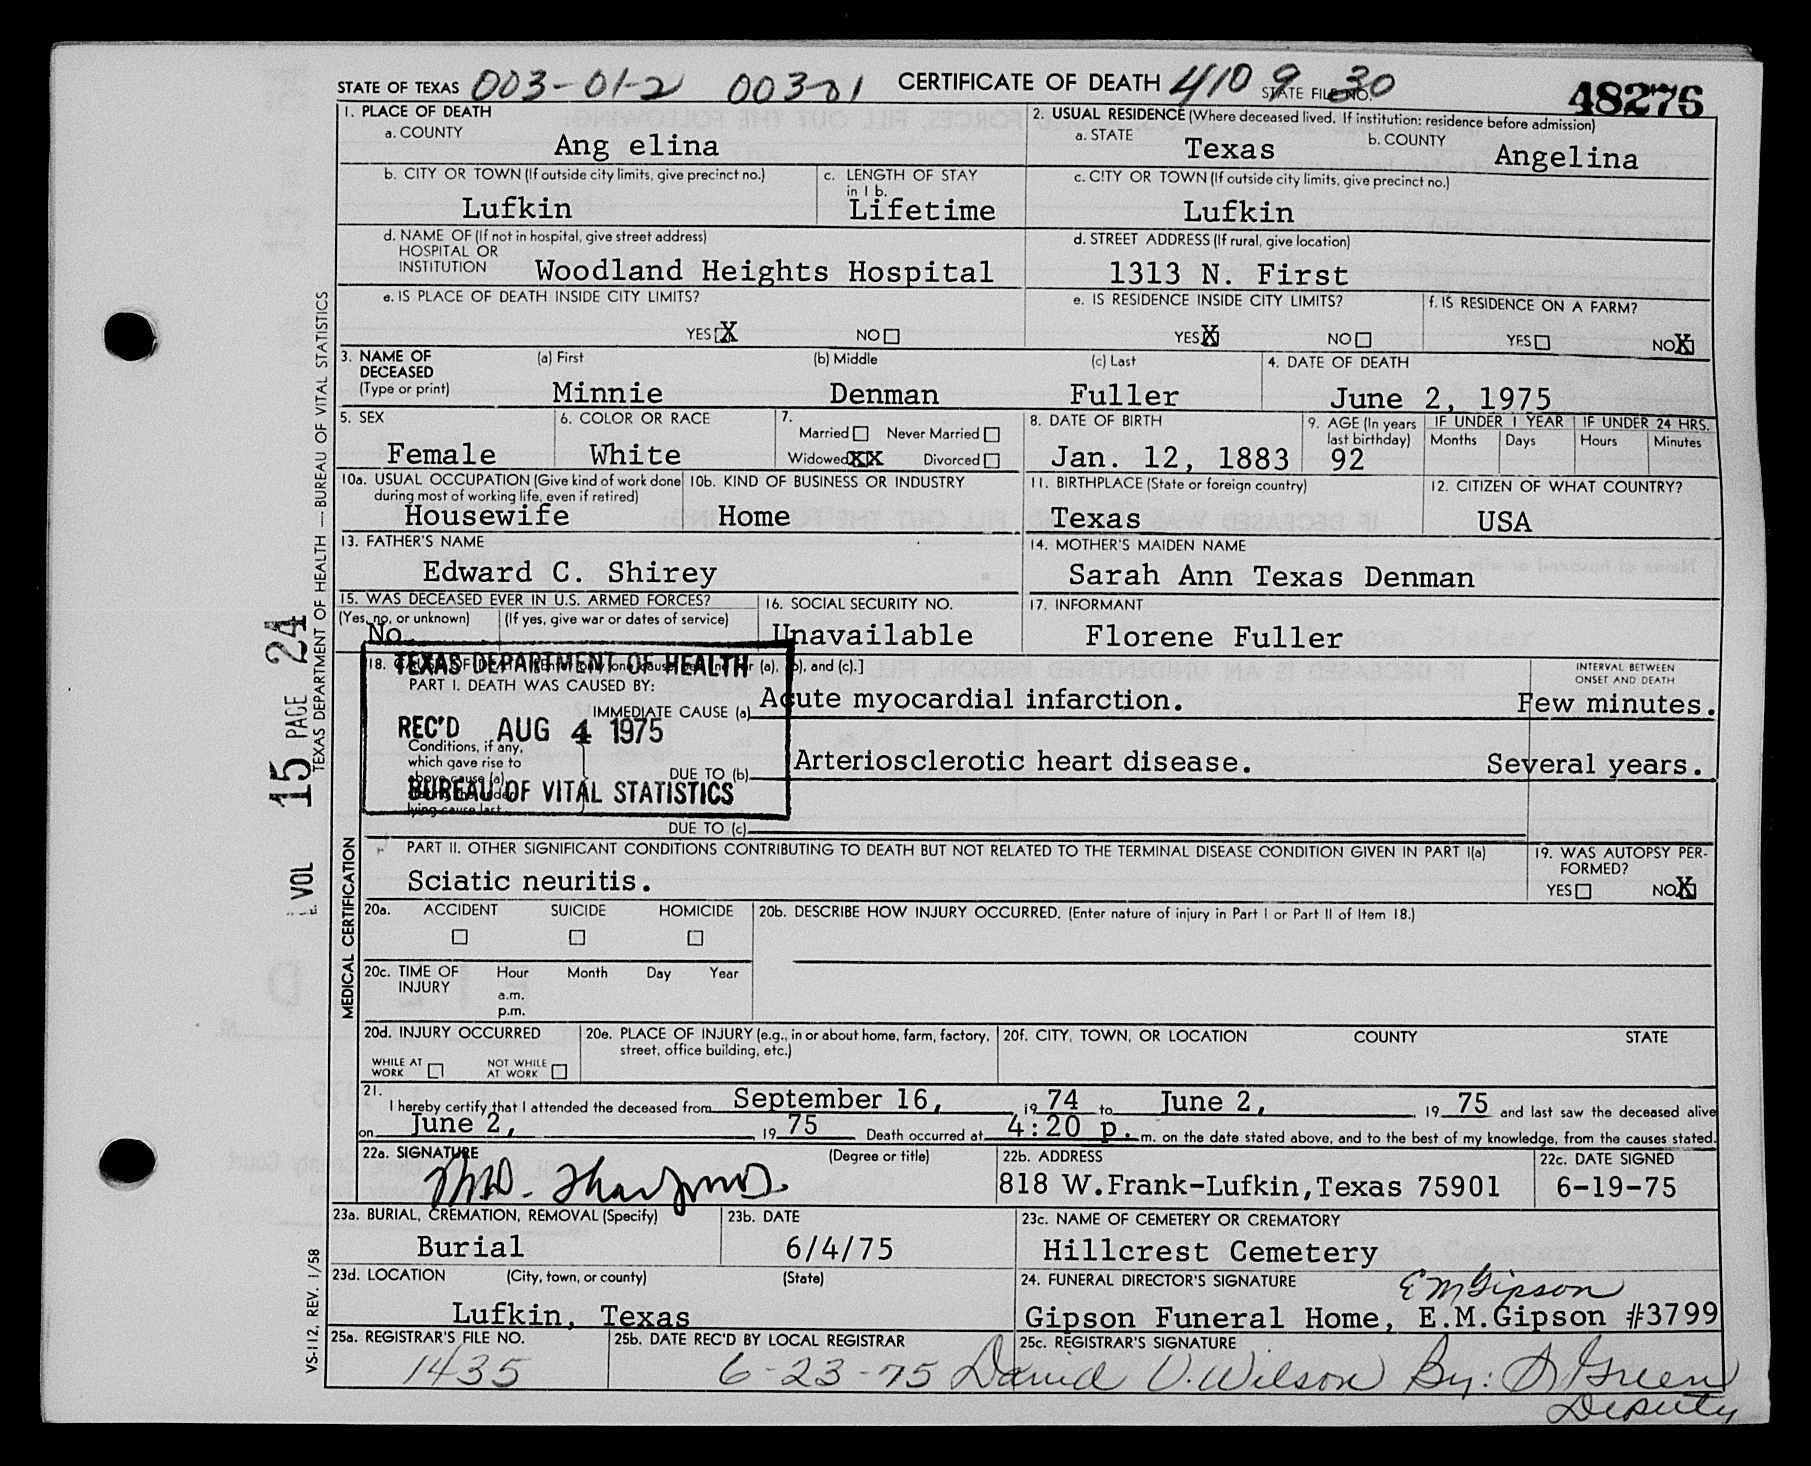 STATE OF TEXAS 003-01-2 003-01 CERTIFICATE OF DEATH 410 9 30 STATE FILE NO. 48276
1. PLACE OF DEATH
a. COUNTY
Ang elina
2. USUAL RESIDENCE (Where deceased lived. If institution: residence before admission)
a. STATE
Texas
b. COUNTY
Angelina
b. CITY OR TOWN (If outside city limits, give precinct no.)
Lufkin
c. LENGTH OF STAY
in 1 b.
Lifetime
c. CITY OR TOWN (If outside city limits, give precinct no.)
Lufkin
d. NAME OF (If not in hospital, give street address)
HOSPITAL OR
INSTITUTION Woodland Heights Hospital
d. STREET ADDRESS (If rural, give location)
1313 N. First
e. IS PLACE OF DEATH INSIDE CITY LIMITS?
YES X NO
e. IS RESIDENCE INSIDE CITY LIMITS?
YES X NO
f. IS RESIDENCE ON A FARM?
YES NO X
3. NAME OF
DECEASED
(Type or print)
(a) First (b) Middle (c) Last
Minnie Denman Fuller
4. DATE OF DEATH
June 2, 1975
5. SEX
Female
6. COLOR OR RACE
White
7.
Married Never Married
Widowed XX Divorced
8. DATE OF BIRTH
Jan. 12, 1883
9. AGE (In years
last birthday)
92
IF UNDER 1 YEAR
Months Days
IF UNDER 24 HRS.
Hours Minutes
10a. USUAL OCCUPATION (Give kind of work done
during most of working life, even if retired)
Housewife
10b. KIND OF BUSINESS OR INDUSTRY
Home
11. BIRTHPLACE (State or foreign country)
Texas
12. CITIZEN OF WHAT COUNTRY?
USA
13. FATHER'S NAME
Edward C. Shirey
14. MOTHER'S MAIDEN NAME
Sarah Ann Texas Denman
15. WAS DECEASED EVER IN U.S. ARMED FORCES?
(Yes, no, or unknown) (If yes, give war or dates of service)
No
16. SOCIAL SECURITY NO.
Unavailable
17. INFORMANT
Florene Fuller
TEXAS DEPARTMENT OF HEALTH
REC'D AUG 4 1975
BUREAU OF VITAL STATISTICS
18. (a), (b), and (c).]
INTERVAL BETWEEN
ONSET AND DEATH
PART I. DEATH WAS CAUSED BY:
IMMEDIATE CAUSE (a) Acute myocardial infarction. Few minutes.
Conditions, if any,
which gave rise to
above cause (a)
lying cause last
DUE TO (b) Arteriosclerotic heart disease. Several years.
DUE TO (c)
PART II. OTHER SIGNIFICANT CONDITIONS CONTRIBUTING TO DEATH BUT NOT RELATED TO THE TERMINAL DISEASE CONDITION GIVEN IN PART I(a)
Sciatic neuritis.
19. WAS AUTOPSY PER-
FORMED?
YES NO X
20a. ACCIDENT SUICIDE HOMICIDE
20b. DESCRIBE HOW INJURY OCCURRED. (Enter nature of injury in Part I or Part II of Item 18.)
20c. TIME OF
INJURY
Hour Month Day Year
a.m.
p.m.
20d. INJURY OCCURRED
WHILE AT
WORK
NOT WHILE
AT WORK
20e. PLACE OF INJURY (e.g., in or about home, farm, factory,
street, office building, etc.)
20f. CITY, TOWN, OR LOCATION COUNTY STATE
21.
I hereby certify that I attended the deceased from September 16, 19 74 to June 2, 19 75 and last saw the deceased alive
on June 2, 19 75 Death occurred at 4:20 p. m. on the date stated above, and to the best of my knowledge, from the causes stated.
22a. SIGNATURE (Degree or title)
22b. ADDRESS
818 W.Frank-Lufkin,Texas 75901
22c. DATE SIGNED
6-19-75
23a. BURIAL, CREMATION, REMOVAL (Specify)
Burial
23b. DATE
6/4/75
23c. NAME OF CEMETERY OR CREMATORY
Hillcrest Cemetery
23d. LOCATION (City, town, or county) (State)
Lufkin, Texas
24. FUNERAL DIRECTOR'S SIGNATURE
E M Gipson
Gipson Funeral Home, E.M.Gipson #3799
25a. REGISTRAR'S FILE NO.
1435
25b. DATE REC'D BY LOCAL REGISTRAR
6-23-75
25c. REGISTRAR'S SIGNATURE
David V. Wilson By: Green
Deputy
TEXAS DEPARTMENT OF HEALTH — BUREAU OF VITAL STATISTICS
VOL 15 PAGE 24
MEDICAL CERTIFICATION
VS-112, REV. 1/58